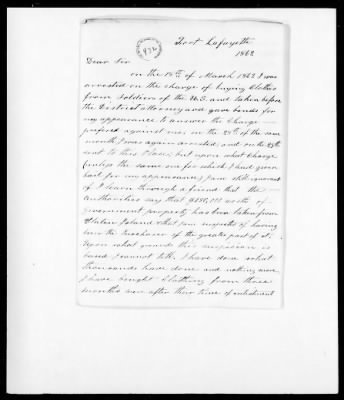 Fort Lafayette
1862
936
Dear Sir
on the 15th of March 1862 I was
arrested on the charge of buying Clothes
from Soldiers of the U.S. and taken before
the District attorney and gave bonds for
my appearance to answer the Charge
prefered against me, on the 25th of the same
month I was again arrested, and on the 28th
sent to this place, but upon what Charge
(unless the same one for which I had given
bail for my appearance) I am still ignorant
of I learn through a friend that the
authorities say that worth of
government property has been taken from
Staten Island that I am suspected of having
been the purchaser of the greater part of it.
Upon what grounds this suspicion is
based I cannot tell. I have done what
thousands have done and nothing more,
I have bought Clothing from those
months men after their time of enlistment